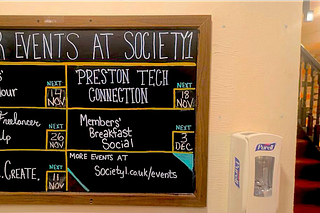 R EVENTS AT SOCIETY1
our
NEXT
14
NOV
PRESTON TECH
CONNECTION
NEXT
18
NOV
Freelancer
Up
NEXT
26
NOV
Members'
Breakfast
Social
NEXT
3
DEC
. CREATE.
NEXT
11
NOV
MORE EVENTS AT
Society1.co.uk/events
Purell